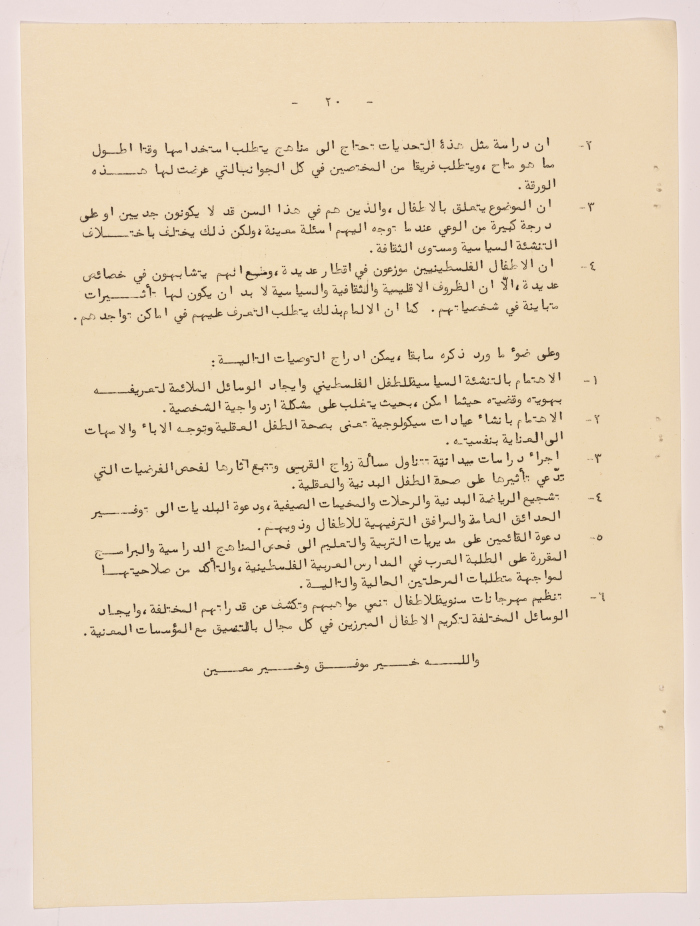 - ٢٠ -
٢- ان دراسة مثل هذة التحديات تحتاج الى مناهج يتطلب استخدامها وقتا اطول
مما هو متاح ،ويتطلب فريقا من المختصين في كل الجوانبالتي عرضت لها هـــذه
الورقة .
٣- ان الموضوع يتعلق بالاطفال ،والذين هم في هذا السن قد لا يكونون جديين او على
درجة كبيرة من الوعي عندما توجه اليهم اسئلة معينة ،ولكن ذلك يختلف باختـــلاف
التنشئة السياسية ومستوى الثقافة .
٤- ان الاطفال الفلسطينيين موزعون في اقطار عديدة ،ومع انهم يتشابهون في خصائص
عديدة ،الّا ان الظروف الاقليمية والثقافية والسياسية لا بد ان يكون لها تأثـــيرات
متباينة في شخصياتهم . كما ان الالمام بذلك يتطلب التعرف عليهم في اماكن تواجدهم .
وعلى ضوء ما ورد ذكره سابقا ،يمكن ادراج التوصيات التاليـــة :
١- الاهتمام بالتنشئة السياسية للطفل الفلسطيني وايجاد الوسائل الملائمة لتعريفـــه
بهويته وقضيته حيثما امكن ،بحيث يتغلب على مشكلة ازدواجية الشخصية .
٢- الاهتمام بانشاء عيادات سيكولوجية تعنى بصحة الطفل العقلية وتوجه الاباء والامهات
الى العناية بنفسيته .
٣- اجراء دراسات ميدانية تتناول مسألة زواج القربى وتتبع آثارها لفحص الفرضيات التي
تدّعي تأثيرها على صحة الطفل البدنية والعقلية .
٤- تشجيع الرياضة البدنية والرحلات والمخيمات الصيفية ،ودعوة البلديات الى توفـــير
الحدائق العامة والمرافق الترفيهية للاطفال وذويهم .
٥- دعوة القائمين على مديريات التربية والتعليم الى فحص المناهج الدراسية والبرامـــج
المقررة على الطلبة العرب في المدارس العربية الفلسطينية ،والتأكد من صلاحيتهـــا
لمواجهة متطلبات المرحلتين الحالية والتاليـــة .
٦- تنظيم مهرجانات سنوية للاطفال تنمي مواهبهم وتكشف عن قدراتهم المختلفة ،وايجـاد
الوسائل المختلفة لتكريم الاطفال المبرزين في كل مجال بالتنسيق مع المؤسسات المعنية .
واللـــه خـــير موفـــق وخـــير معـــين